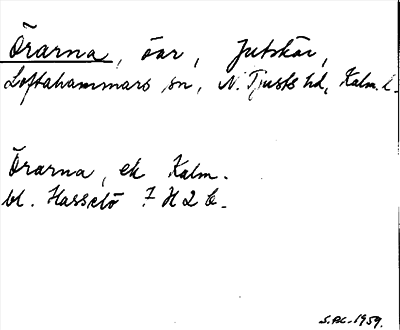 Örarna, öar, Jutskär,
Loftahammars sn, N. Tjusts hd, Kalm. l.
Örarna, ek Kalm.
bl. Hasselö 7 H 2 b.
1959.